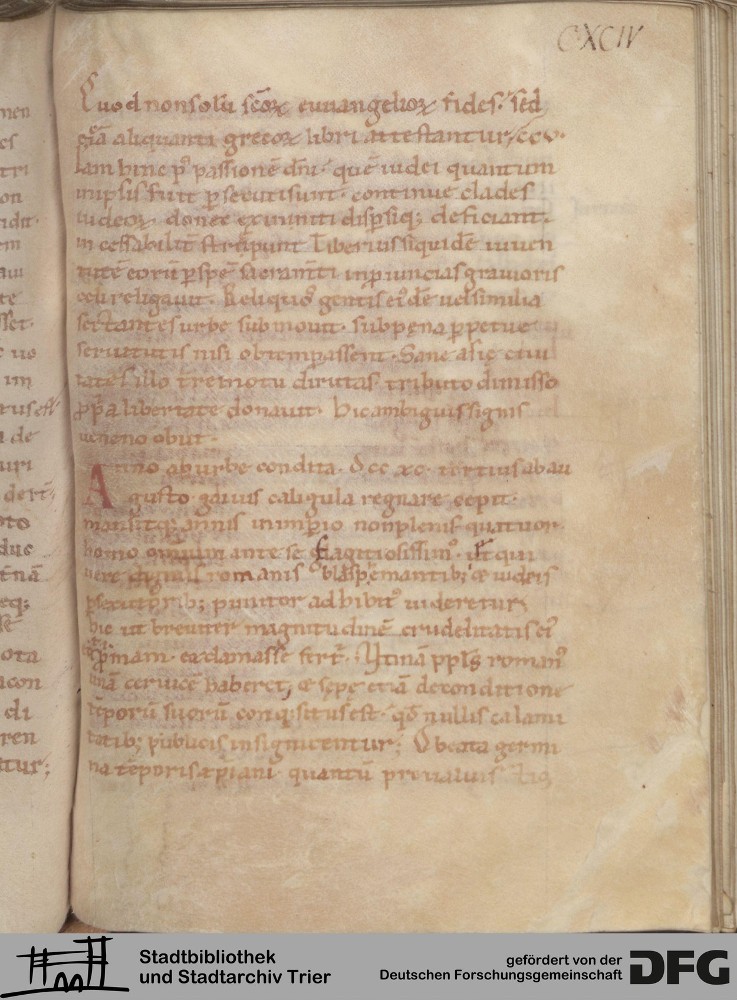 CXCIV
Quod non solū scōꝝ euuangelioꝝ fides. sed
etiā aliquanti grecoꝝ libri attestantur, CCV.
Iam hinc p̄ passionē dn̄i. quē iudei quantum
in ipsis fuit ꝑsecuti sunt. continue clades
iudeoꝝ. donec exinaniti disꝑsiq; deficiant.
incessabilit̄ strepunt. Tiberius siquidē iuuen
tutē eorū ꝑ spē sacramti in ꝓuincias grauioris
celi religauit. Reliquos gentis eiꝰdē uel similia
sectantes urbe submouit. sub pena ꝑpetue
seruitutis nisi obtemꝑassent. Sane asię ciui
tates illo tremotu dirutas. tributo dimisso
ꝓpria libertate donauit. Hic ambiguis signis
ueneno obiit.
Anno ab urbe condita. DCC XC. tertius ab au
gusto gaius caligula regnare cepit.
mansitq; annis in imꝑio non plenis quattuor.
homo omnium ante se flagitiosissimꝰ. et qui
uere dignus romanis blasphemantibꝰ & iudeis
ꝑsecutoribꝰ punitor adhibitꝰ uideretur,
hic ut breuiter magnitudinē crudelitatis eiꝰ
exprimam. exclamasse fert̄. Utinā ppls romanꝰ
unā ceruicē haberet, & sepe etiā de conditione
tēporū suorū conq̄stus est. qd̄ nullis calami
tatibꝰ publicis insignirentur; O beata germi
na tēporis xp̄iani. quantū preualuistis
nen
es
tri
on
m
te
sset.
uo
im
de
uri
to
duc
eq;
ota
acon
di
ren
tur;
Stadtbibliothek
und Stadtarchiv Trier
gefördert von der
Deutschen Forschungsgemeinschaft
DFG